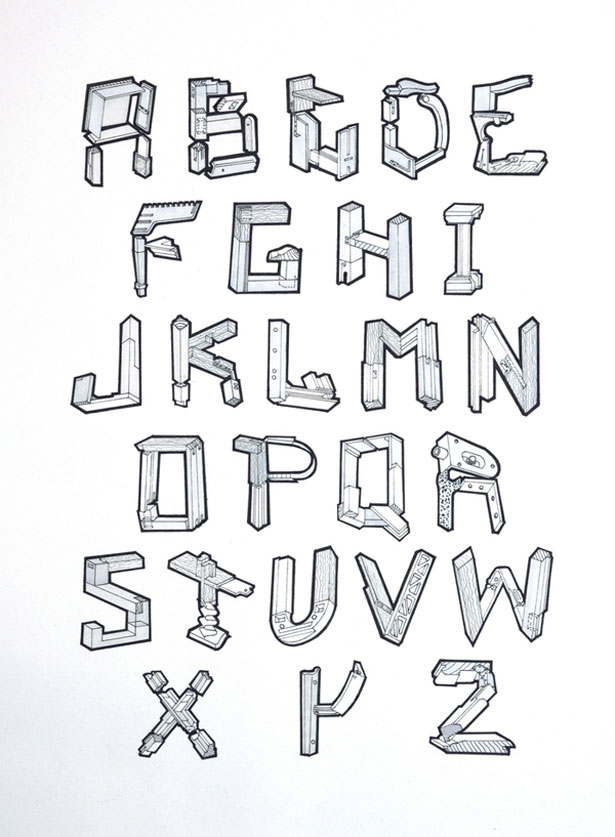 A B C D E
F G H I
J K L M N
O P Q R
S T U V W
X Y Z